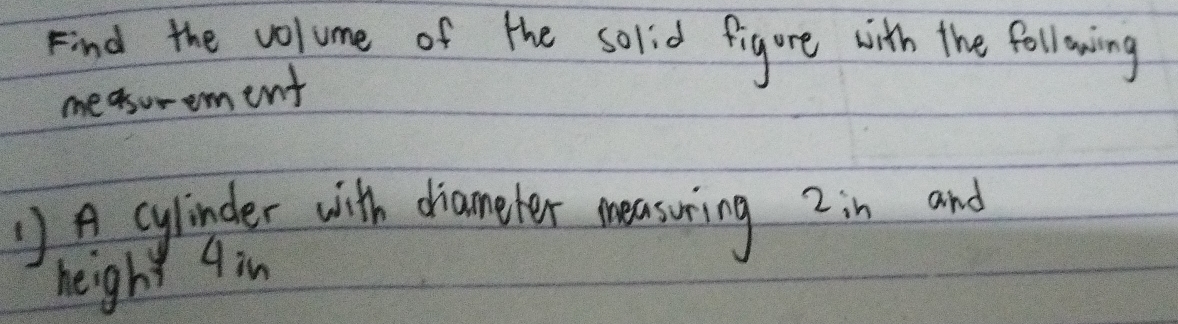 Find the volume of the solid figure with the following
measurement
1) A cylinder with diameter measuring 2 in and
height 4 in